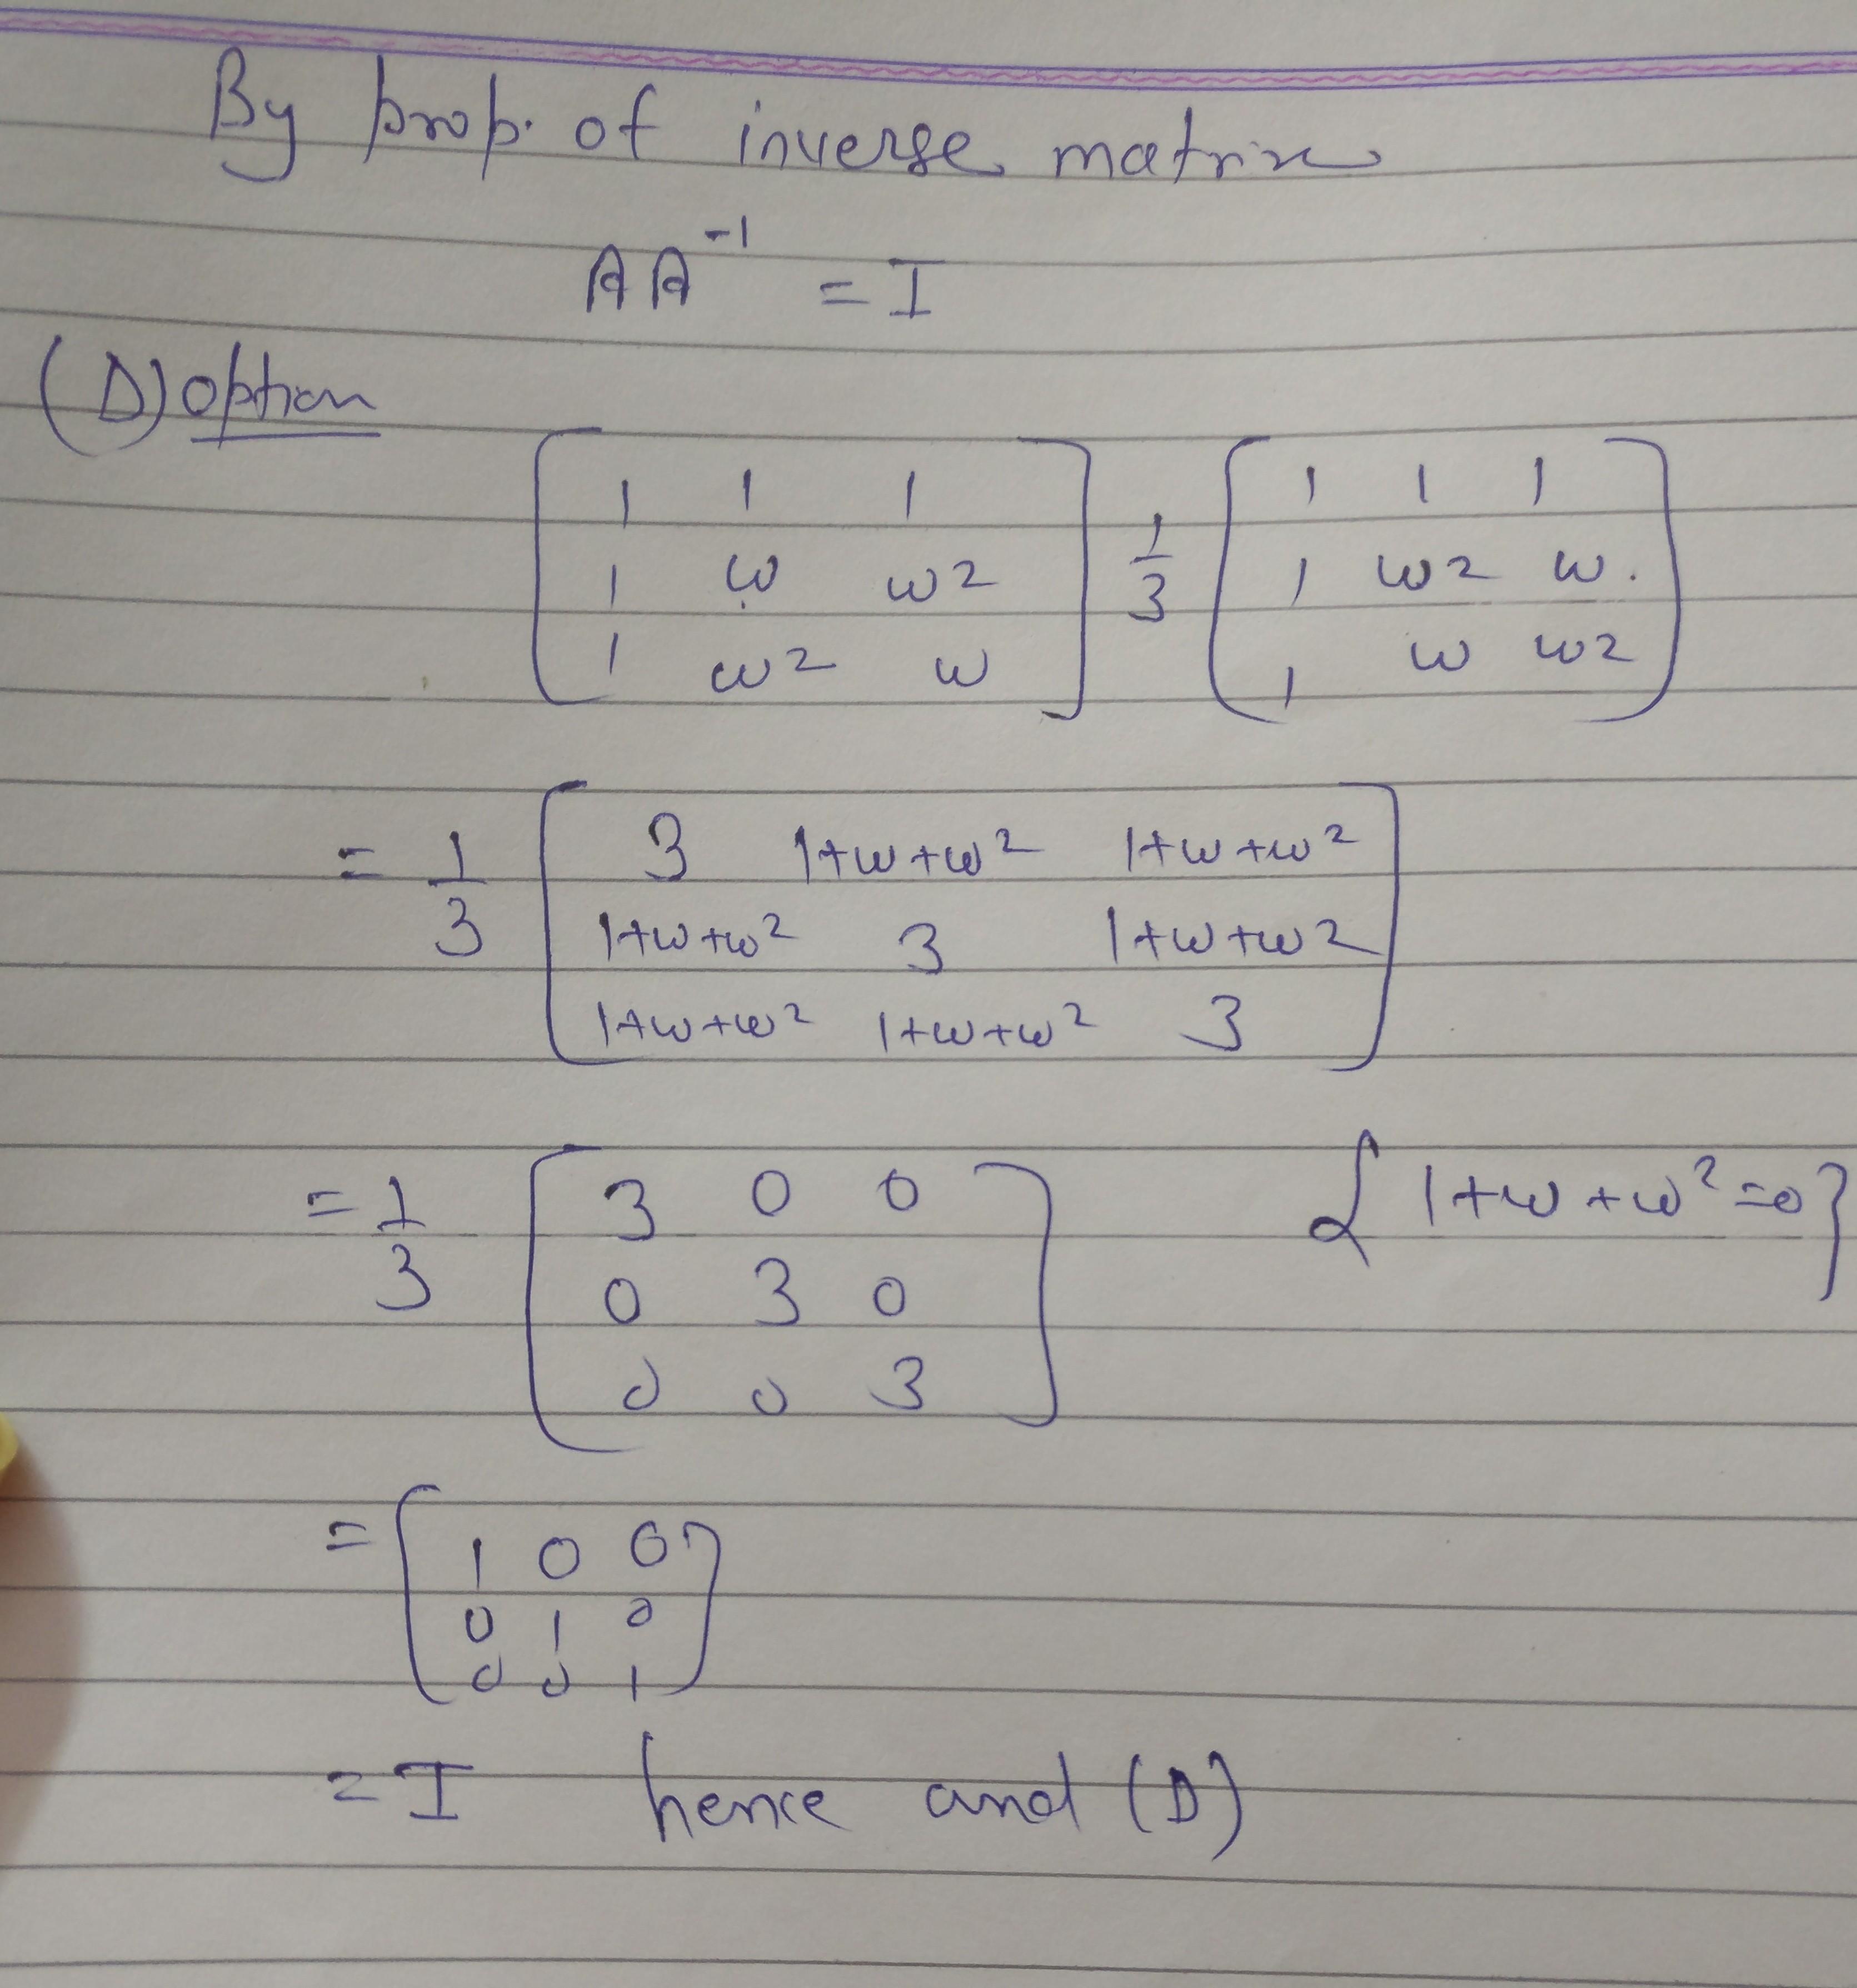 By prop. of inverse matrix
AA⁻¹ = I
(D) option
[1 1 1; 1 ω ω2; 1 ω2 ω] 1/3 [1 1 1; 1 ω2 ω.; 1 ω ω2]
= 1/3 [3 1+ω+ω² 1+ω+ω²; 1+ω+ω² 3 1+ω+ω2; 1+ω+ω² 1+ω+ω² 3]
= 1/3 [3 0 0; 0 3 0; 0 0 3] {1+ω+ω²=0}
= [1 0 0; 0 1 0; 0 0 1]
= I hence and (D)